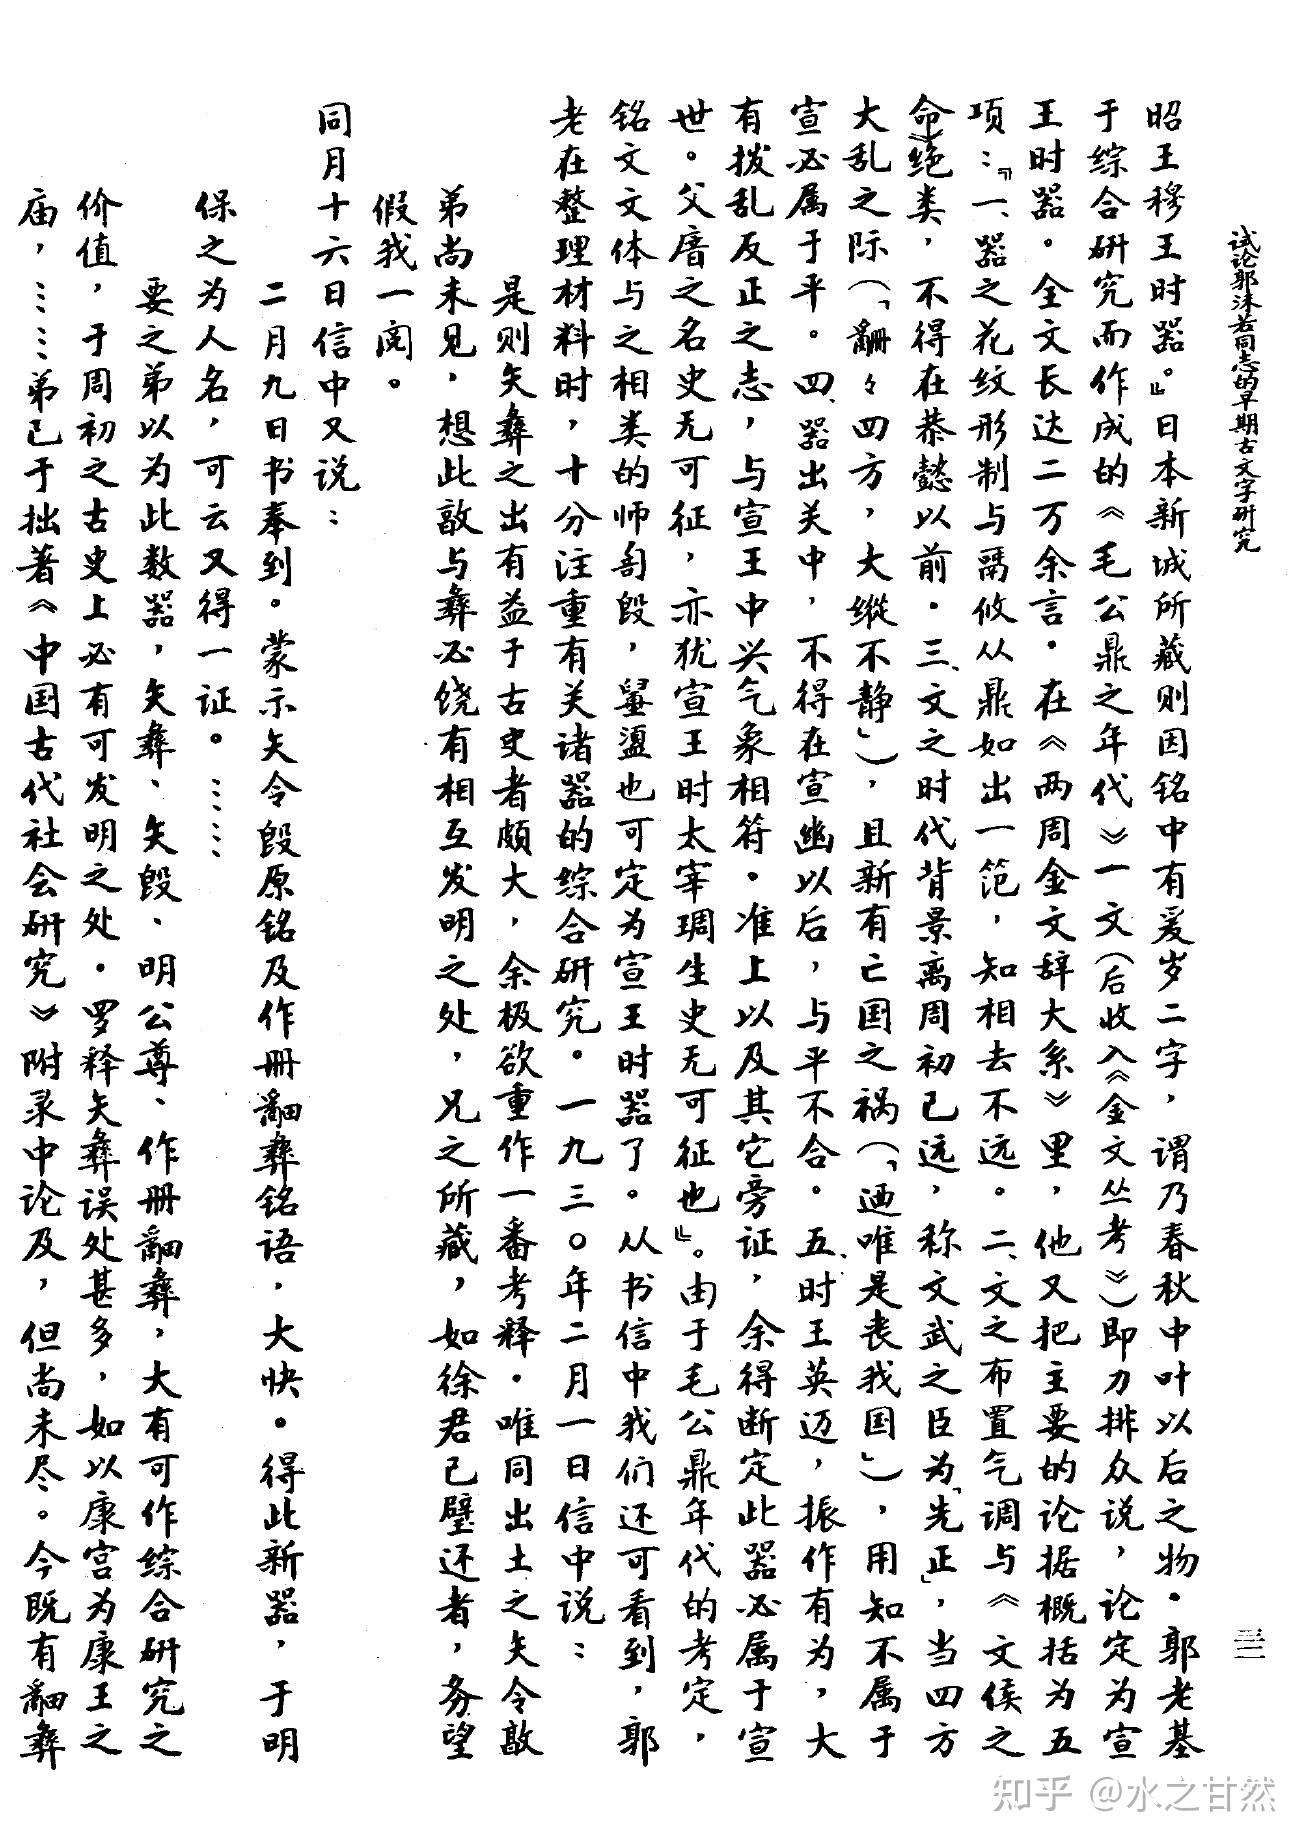 试论郭沫若同志的早期古文字研究
三二
昭王穆王时器。』日本新城所藏则因铭中有爰岁二字，谓乃春秋中叶以后之物。郭老基
于综合研究而作成的《毛公鼎之年代》一文（后收入《金文丛考》）即力排众说，论定为宣
王时器。全文长达二万余言。在《两周金文辞大系》里，他又把主要的论据概括为五
项：『一、器之花纹形制与鬲攸从鼎如出一范，知相去不远。二、文之布置气调与《文侯之
命》绝类，不得在恭懿以前。三、文之时代背景离周初已远，称文武之臣为「先正」，当四方
大乱之际（「䎽〻四方，大纵不静」），且新有亡国之祸（「迺唯是丧我国」），用知不属于
宣必属于平。四、器出关中，不得在宣幽以后，与平不合。五、时王英迈，振作有为，大
有拨乱反正之志，与宣王中兴气象相符。准上以及其它旁证，余得断定此器必属于宣
世。父厝之名史无可征，亦犹宣王时太宰琱生史无可征也』。由于毛公鼎年代的考定，
铭文文体与之相类的师訇𣪘，𩰬盨也可定为宣王时器了。从书信中我们还可看到，郭
老在整理材料时，十分注重有关诸器的综合研究。一九三〇年二月一日信中说：
是则矢彝之出有益于古史者颇大，余极欲重作一番考释。唯同出土之矢令𣪘
弟尚未见，想此𣪘与彝必饶有相互发明之处，兄之所藏，如徐君已璧还者，务望
假我一阅。
同月十六日信中又说：
二月九日书奉到。蒙示矢令𣪘原铭及作册䰜彝铭语，大快。得此新器，于明
保之为人名，可云又得一证。……
要之弟以为此数器，矢彝、矢𣪘、明公尊、作册䰜彝，大有可作综合研究之
价值，于周初之古史上必有可发明之处。罗释矢彝误处甚多，如以康宫为康王之
庙，……弟已于拙著《中国古代社会研究》附录中论及，但尚未尽。今既有䰜彝
知乎 @水之甘然